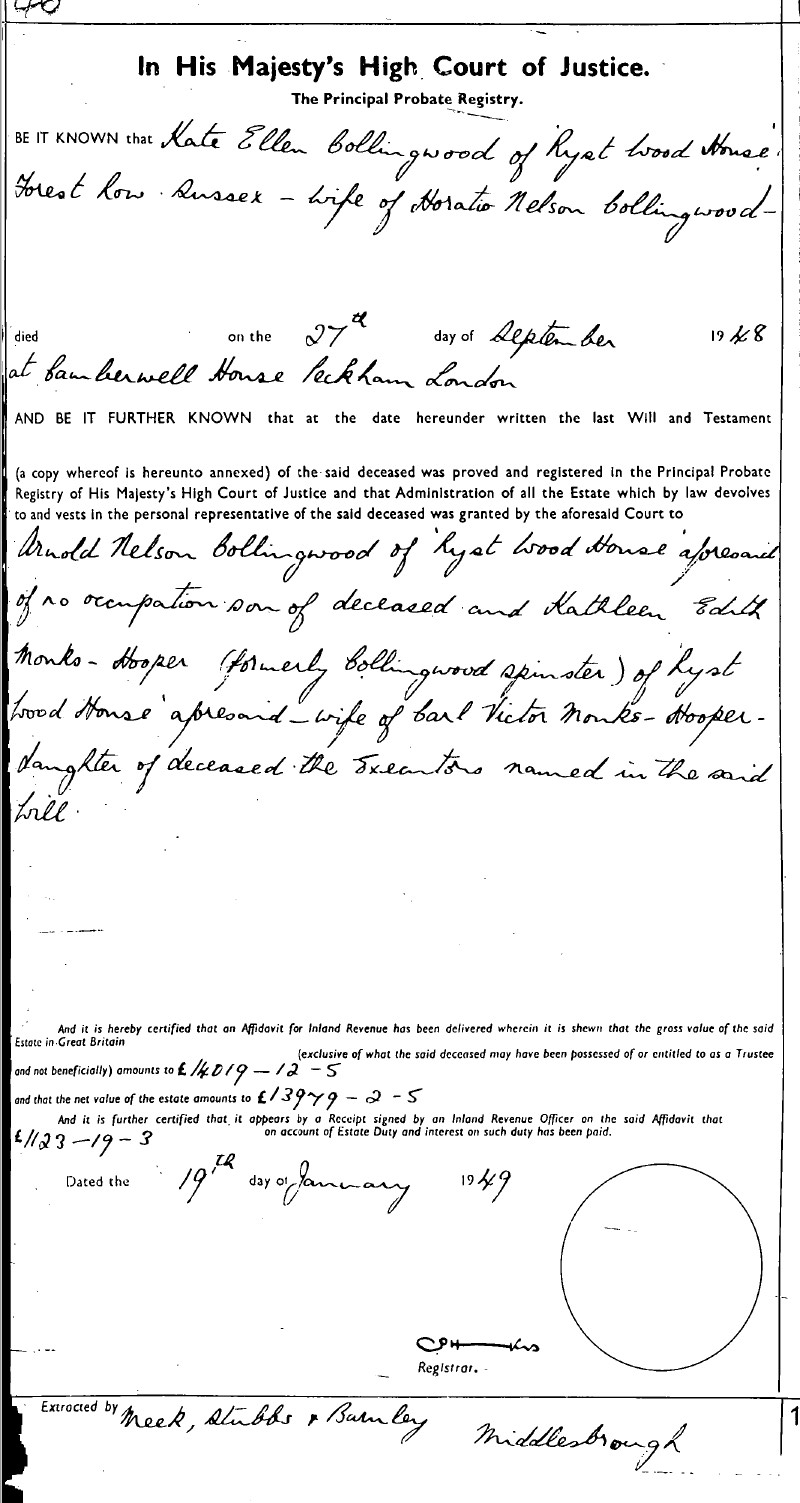 40
In His Majesty's High Court of Justice.
The Principal Probate Registry.
BE IT KNOWN that Kate Ellen Collingwood of 'Ryst Wood House'
Forest Row Sussex - wife of Horatio Nelson Collingwood -
died on the 27th day of September 1948
at Camberwell House Peckham London
AND BE IT FURTHER KNOWN that at the date hereunder written the last Will and Testament
(a copy whereof is hereunto annexed) of the said deceased was proved and registered in the Principal Probate
Registry of His Majesty's High Court of Justice and that Administration of all the Estate which by law devolves
to and vests in the personal representative of the said deceased was granted by the aforesaid Court to
Arnold Nelson Collingwood of 'Ryst Wood House' aforesaid
of no occupation son of deceased and Kathleen Edith
Monks-Hooper (formerly Collingwood spinster) of 'Ryst
Wood House' aforesaid - wife of Carl Victor Monks-Hooper -
daughter of deceased the Executors named in the said
Will.
And it is hereby certified that an Affidavit for Inland Revenue has been delivered wherein it is shewn that the gross value of the said
Estate in Great Britain
(exclusive of what the said deceased may have been possessed of or entitled to as a Trustee
and not beneficially) amounts to £14019-12-5
and that the net value of the estate amounts to £13979-2-5
And it is further certified that it appears by a Receipt signed by an Inland Revenue Officer on the said Affidavit that
£1123-19-3 on account of Estate Duty and interest on such duty has been paid.
Dated the 19th day of January 1949
Registrar.
Extracted by Meek, Stubbs & Barnley Middlesbrough
1